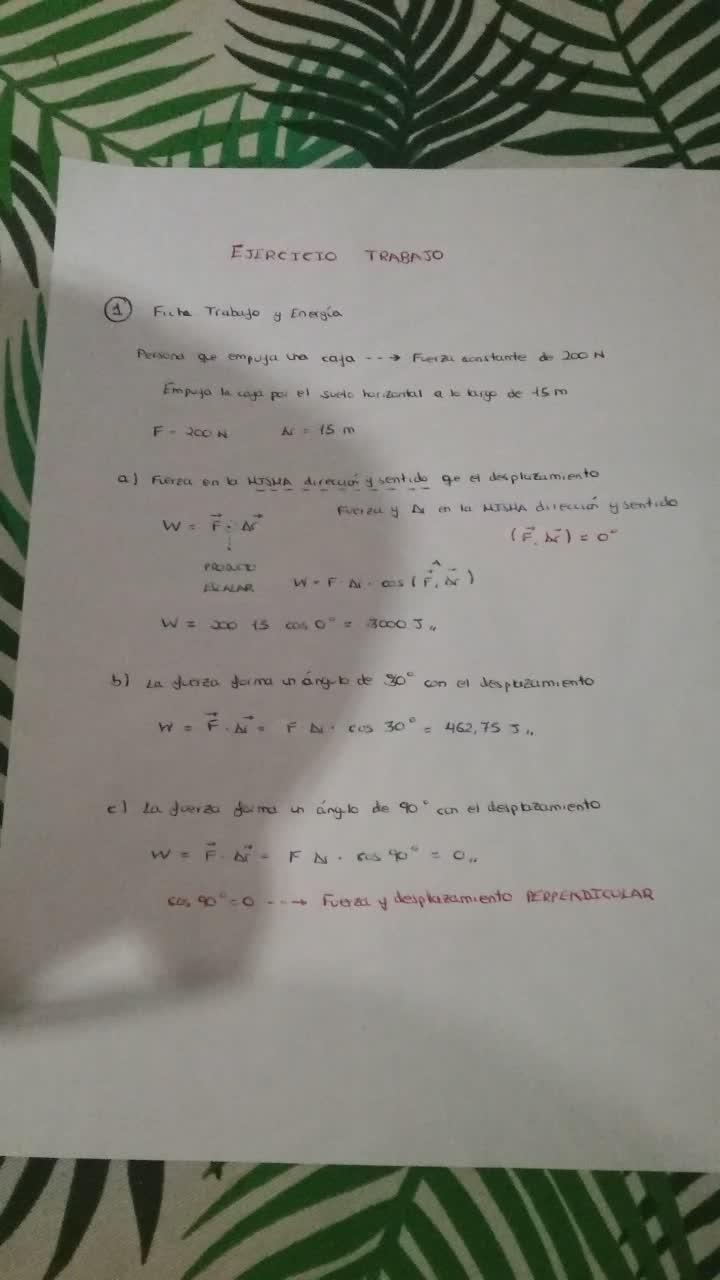 EJERCICIO TRABAJO
1 Ficha Trabajo y Energía
Persona que empuja una caja ---> Fuerza constante de 200 N
Empuja la caja por el suelo horizontal a lo largo de 15 m
F = 200 N Δr = 15 m
a) Fuerza en la MISMA dirección y sentido que el desplazamiento
Fuerza y Δr en la MISMA dirección y sentido
W = F⃗ · Δr⃗
(F⃗, Δr⃗) = 0°
PRODUCTO
ESCALAR
W = F · Δr · cos (F⃗, Δr⃗)
W = 200 · 15 · cos 0° = 3000 J,,
b) La fuerza forma un ángulo de 30° con el desplazamiento
W = F⃗ · Δr⃗ = F · Δr · cos 30° = 462,75 J,,
c) La fuerza forma un ángulo de 90° con el desplazamiento
W = F⃗ · Δr⃗ = F · Δr · cos 90° = 0,,
cos 90° = 0 ---> Fuerza y desplazamiento PERPENDICULAR